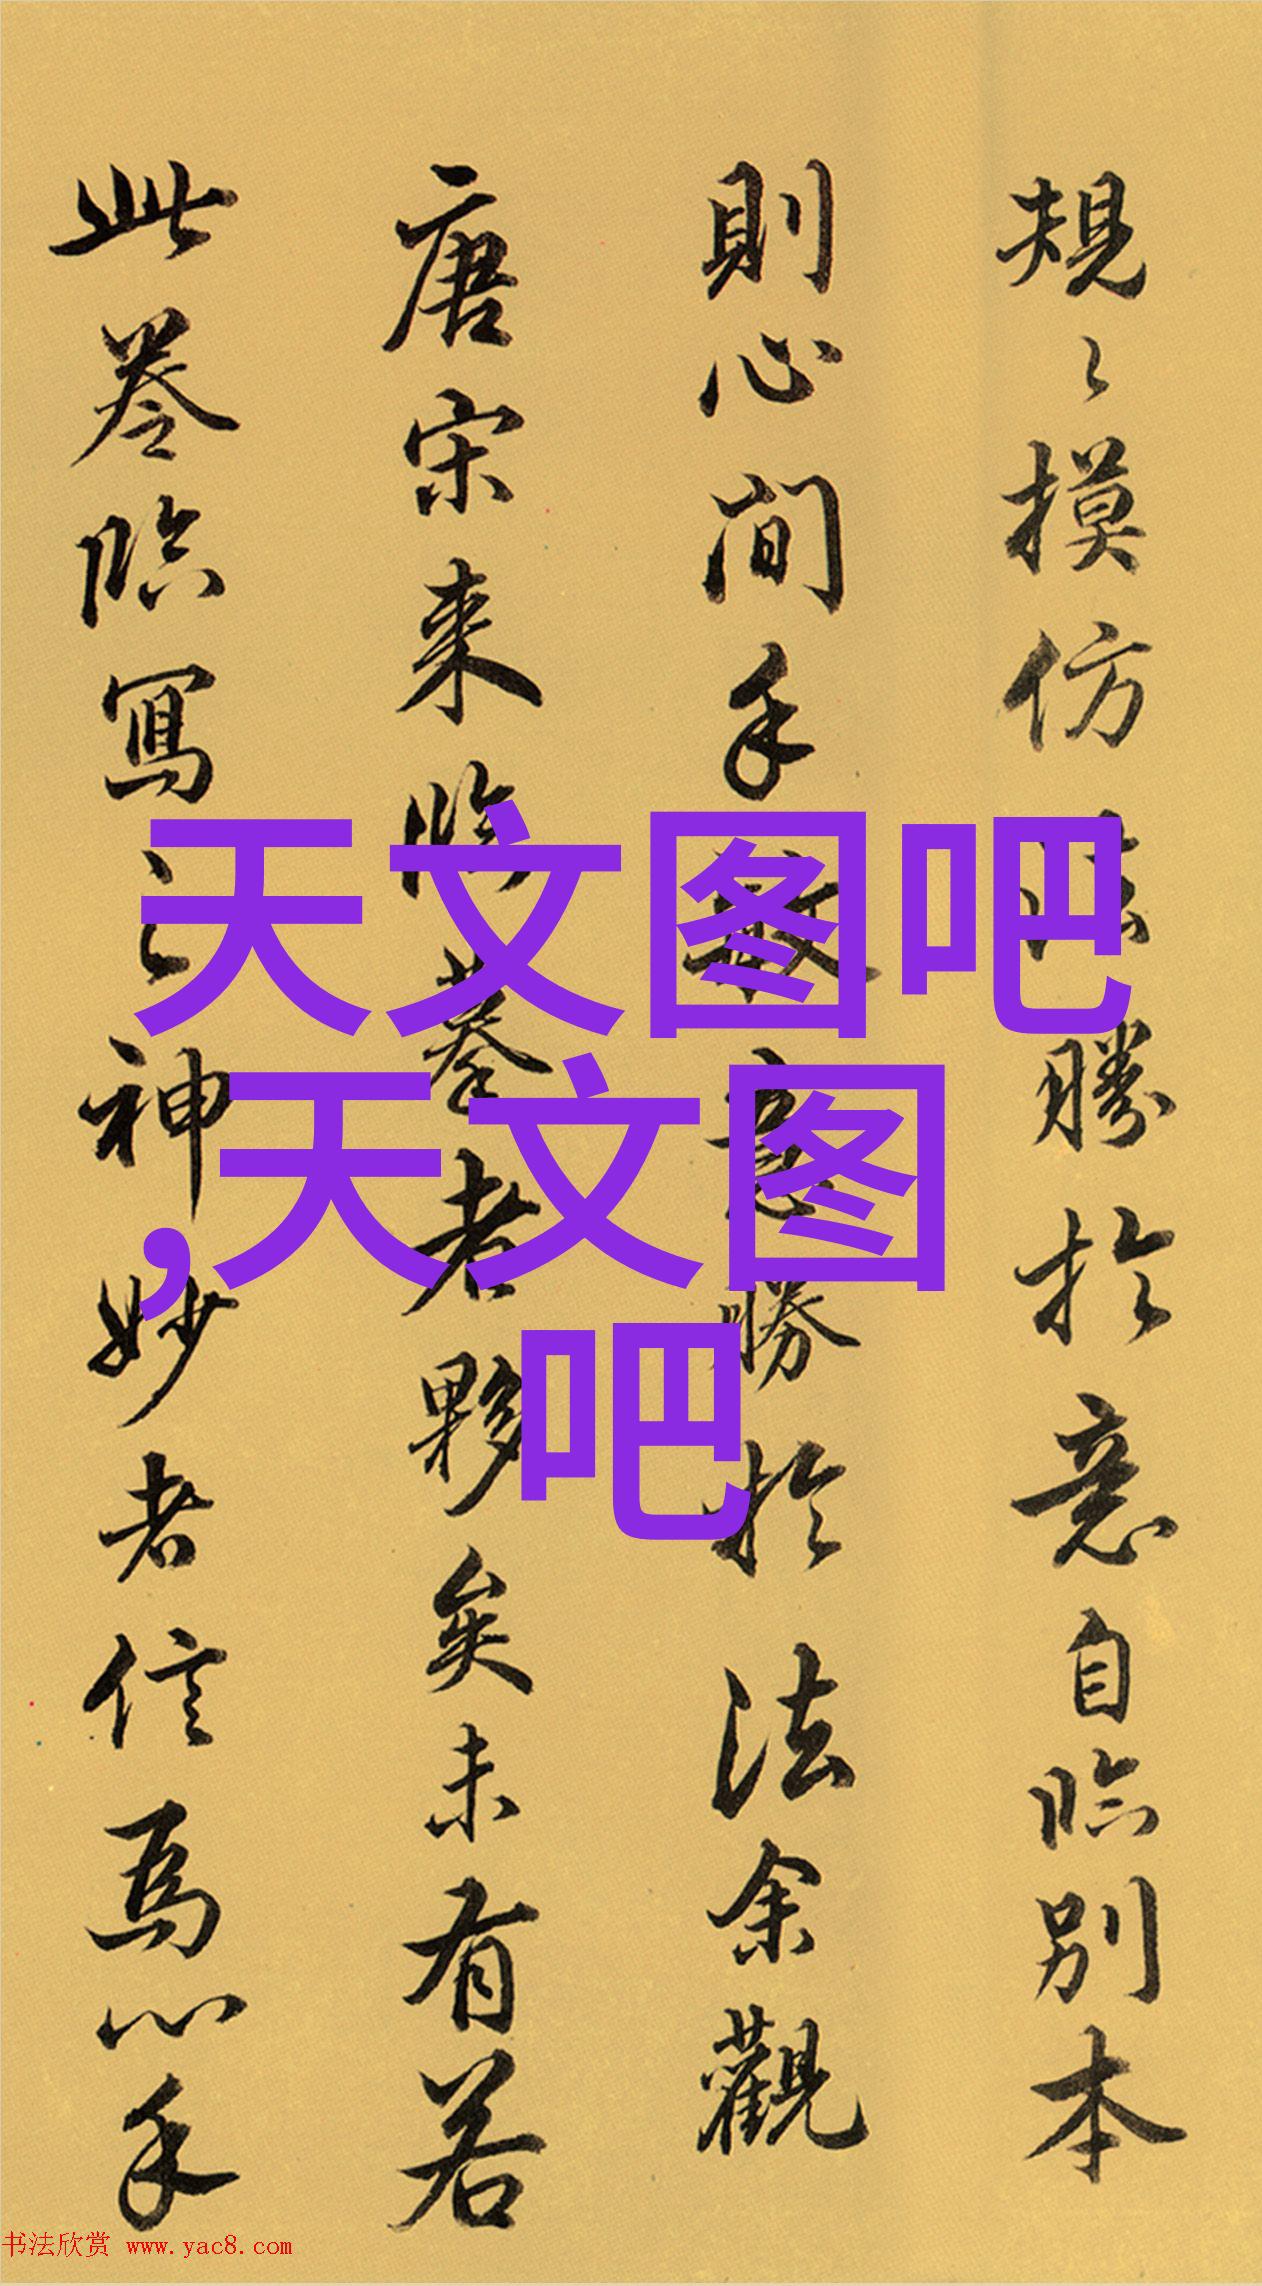 規〻摸仿法勝於意自臨別本
則心閒手敏意勝於法余觀
唐宋来臨摹者夥矣未有若
此卷臨寫之神妙者信為心手
天文图吧
,天文图
吧
书法欣赏 www.yac8.com